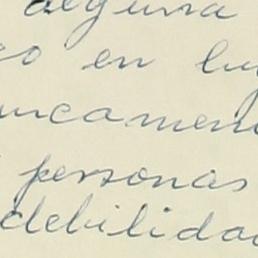 alguna
co en lu
uncamen
personas
debilida